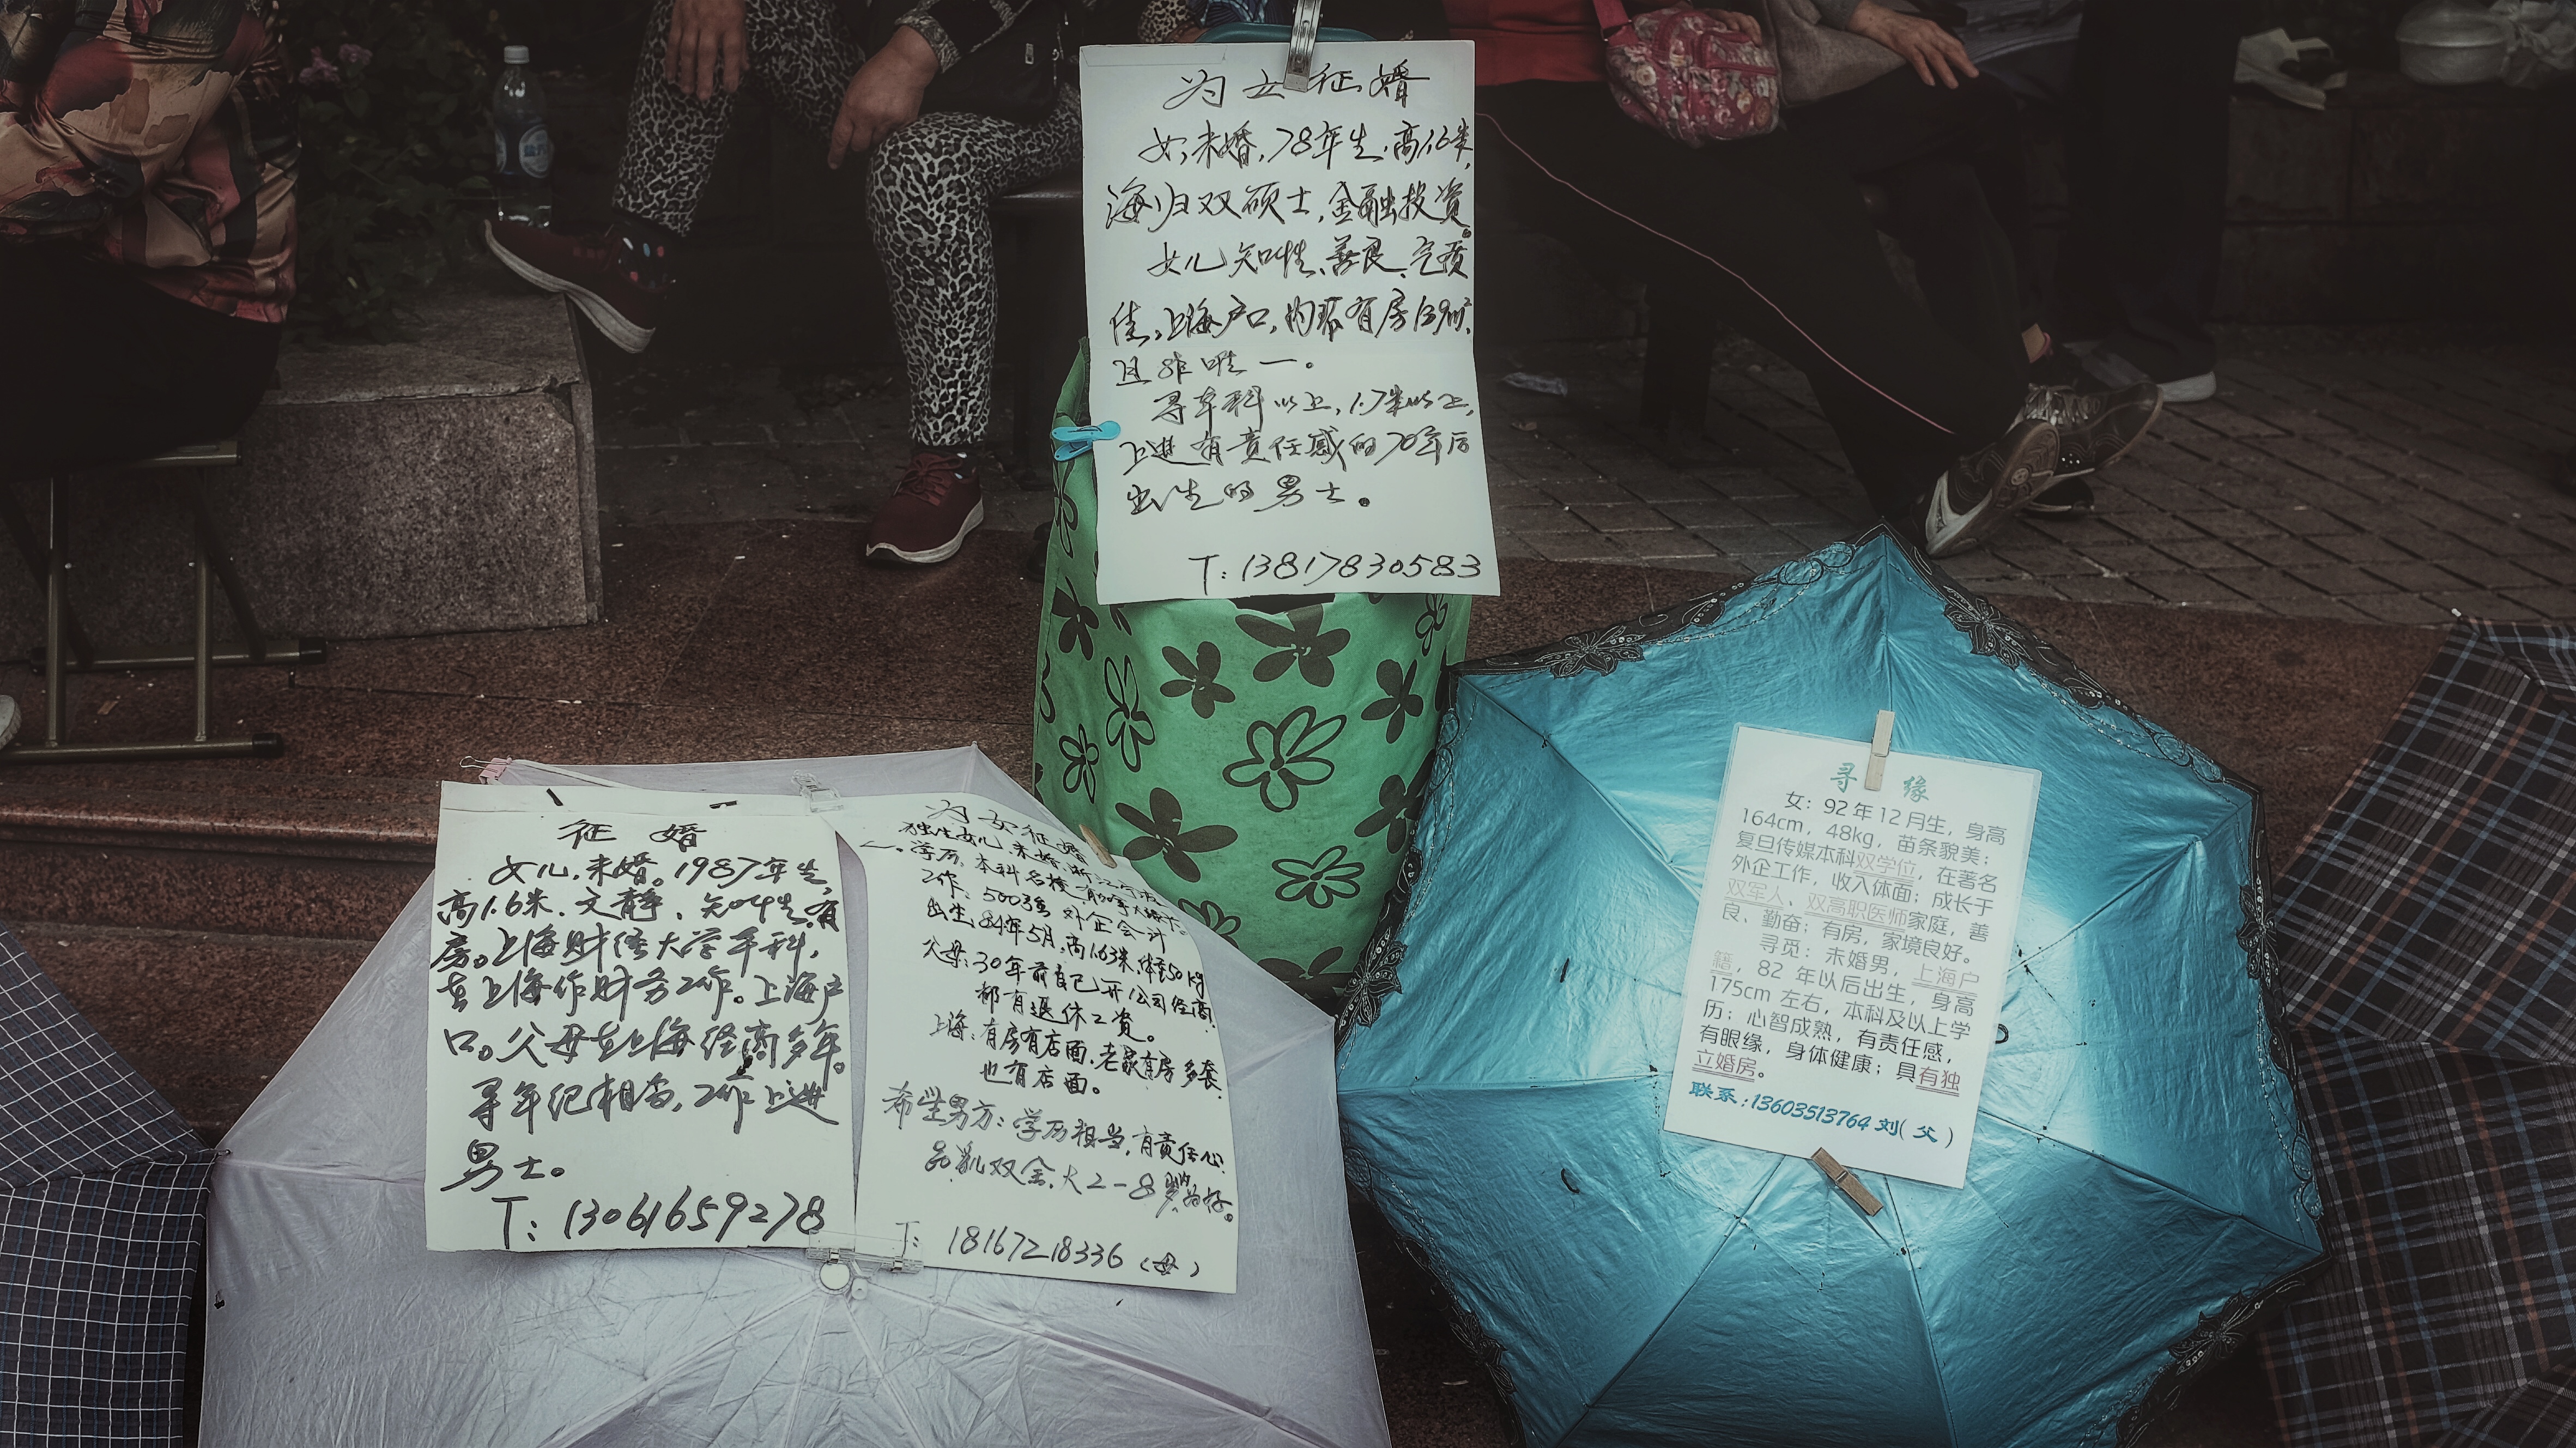 为女征婚
女,未婚,78年生,高1.6米,
海归双硕士,金融投资。
女儿知性、善良、气质
佳,上海户口,内环有房139m²,
且非唯一。
寻本科以上,1.7米以上,
上进有责任感的70年后
出生的男士。
T:13817830583
征婚
女儿,未婚。1987年生,
高1.6米,文静、知性,有
房。上海财经大学本科,
在上海作财务工作。上海户
口。父母在上海经商多年。
寻年纪相当,工作上进
男士。
T:13061659278
为女征婚
独生女儿,未婚,浙江宁波
一。学历,本科名校,
工作:500强外企会计
出生,84年5月,高1.63米,体重50kg
父母:30年前自己开公司经商,
都有退休工资。
上海:有房有店面,老家有房多套
也有店面。
希望男方:学历相当,有责任心,
品貌双全,大2-8岁为好。
T: 18167218336(母)
寻 缘
女:92年12月生,身高
164cm,48kg,苗条貌美;
复旦传媒本科双学位,在著名
外企工作,收入体面;成长于
双军人、双高职医师家庭,善
良、勤奋;有房,家境良好。
寻觅:未婚男,上海户
籍,82年以后出生,身高
175cm左右,本科及以上学
历;心智成熟,有责任感,
有眼缘,身体健康;具有独
立婚房。
联系:13603513764刘(父)